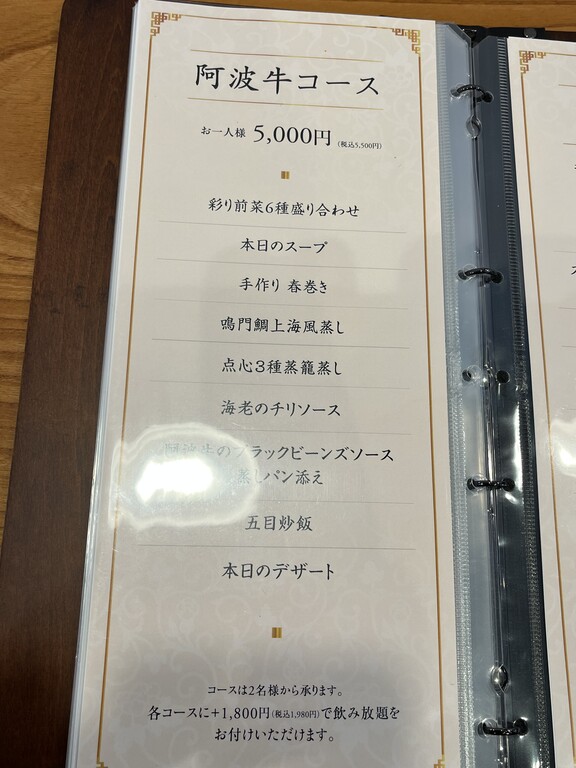 阿波牛コース
お一人様 5,000円 (税込5,500円)
彩り前菜6種盛り合わせ
本日のスープ
手作り 春巻き
鳴門鯛上海風蒸し
点心3種蒸籠蒸し
海老のチリソース
阿波牛のブラックビーンズソース
蒸しパン添え
五目炒飯
本日のデザート
コースは2名様から承ります。
各コースに+1,800円(税込1,980円)で飲み放題を
お付けいただけます。